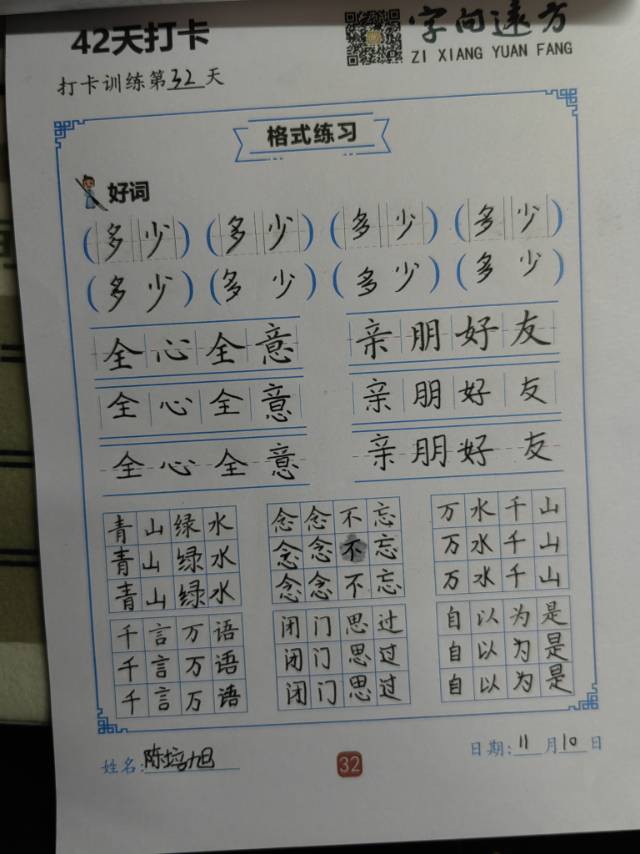 42天打卡
字向远方
ZI XIANG YUAN FANG
打卡训练第32天
格式练习
好词
(多少) (多少) (多少) (多少)
(多少) (多少) (多少) (多少)
全心全意 亲朋好友
全心全意 亲朋好友
全心全意 亲朋好友
青山绿水 念念不忘 万水千山
青山绿水 念念不忘 万水千山
青山绿水 念念不忘 万水千山
千言万语 闭门思过 自以为是
千言万语 闭门思过 自以为是
千言万语 闭门思过 自以为是
姓名:陈培旭 32 日期:11月10日